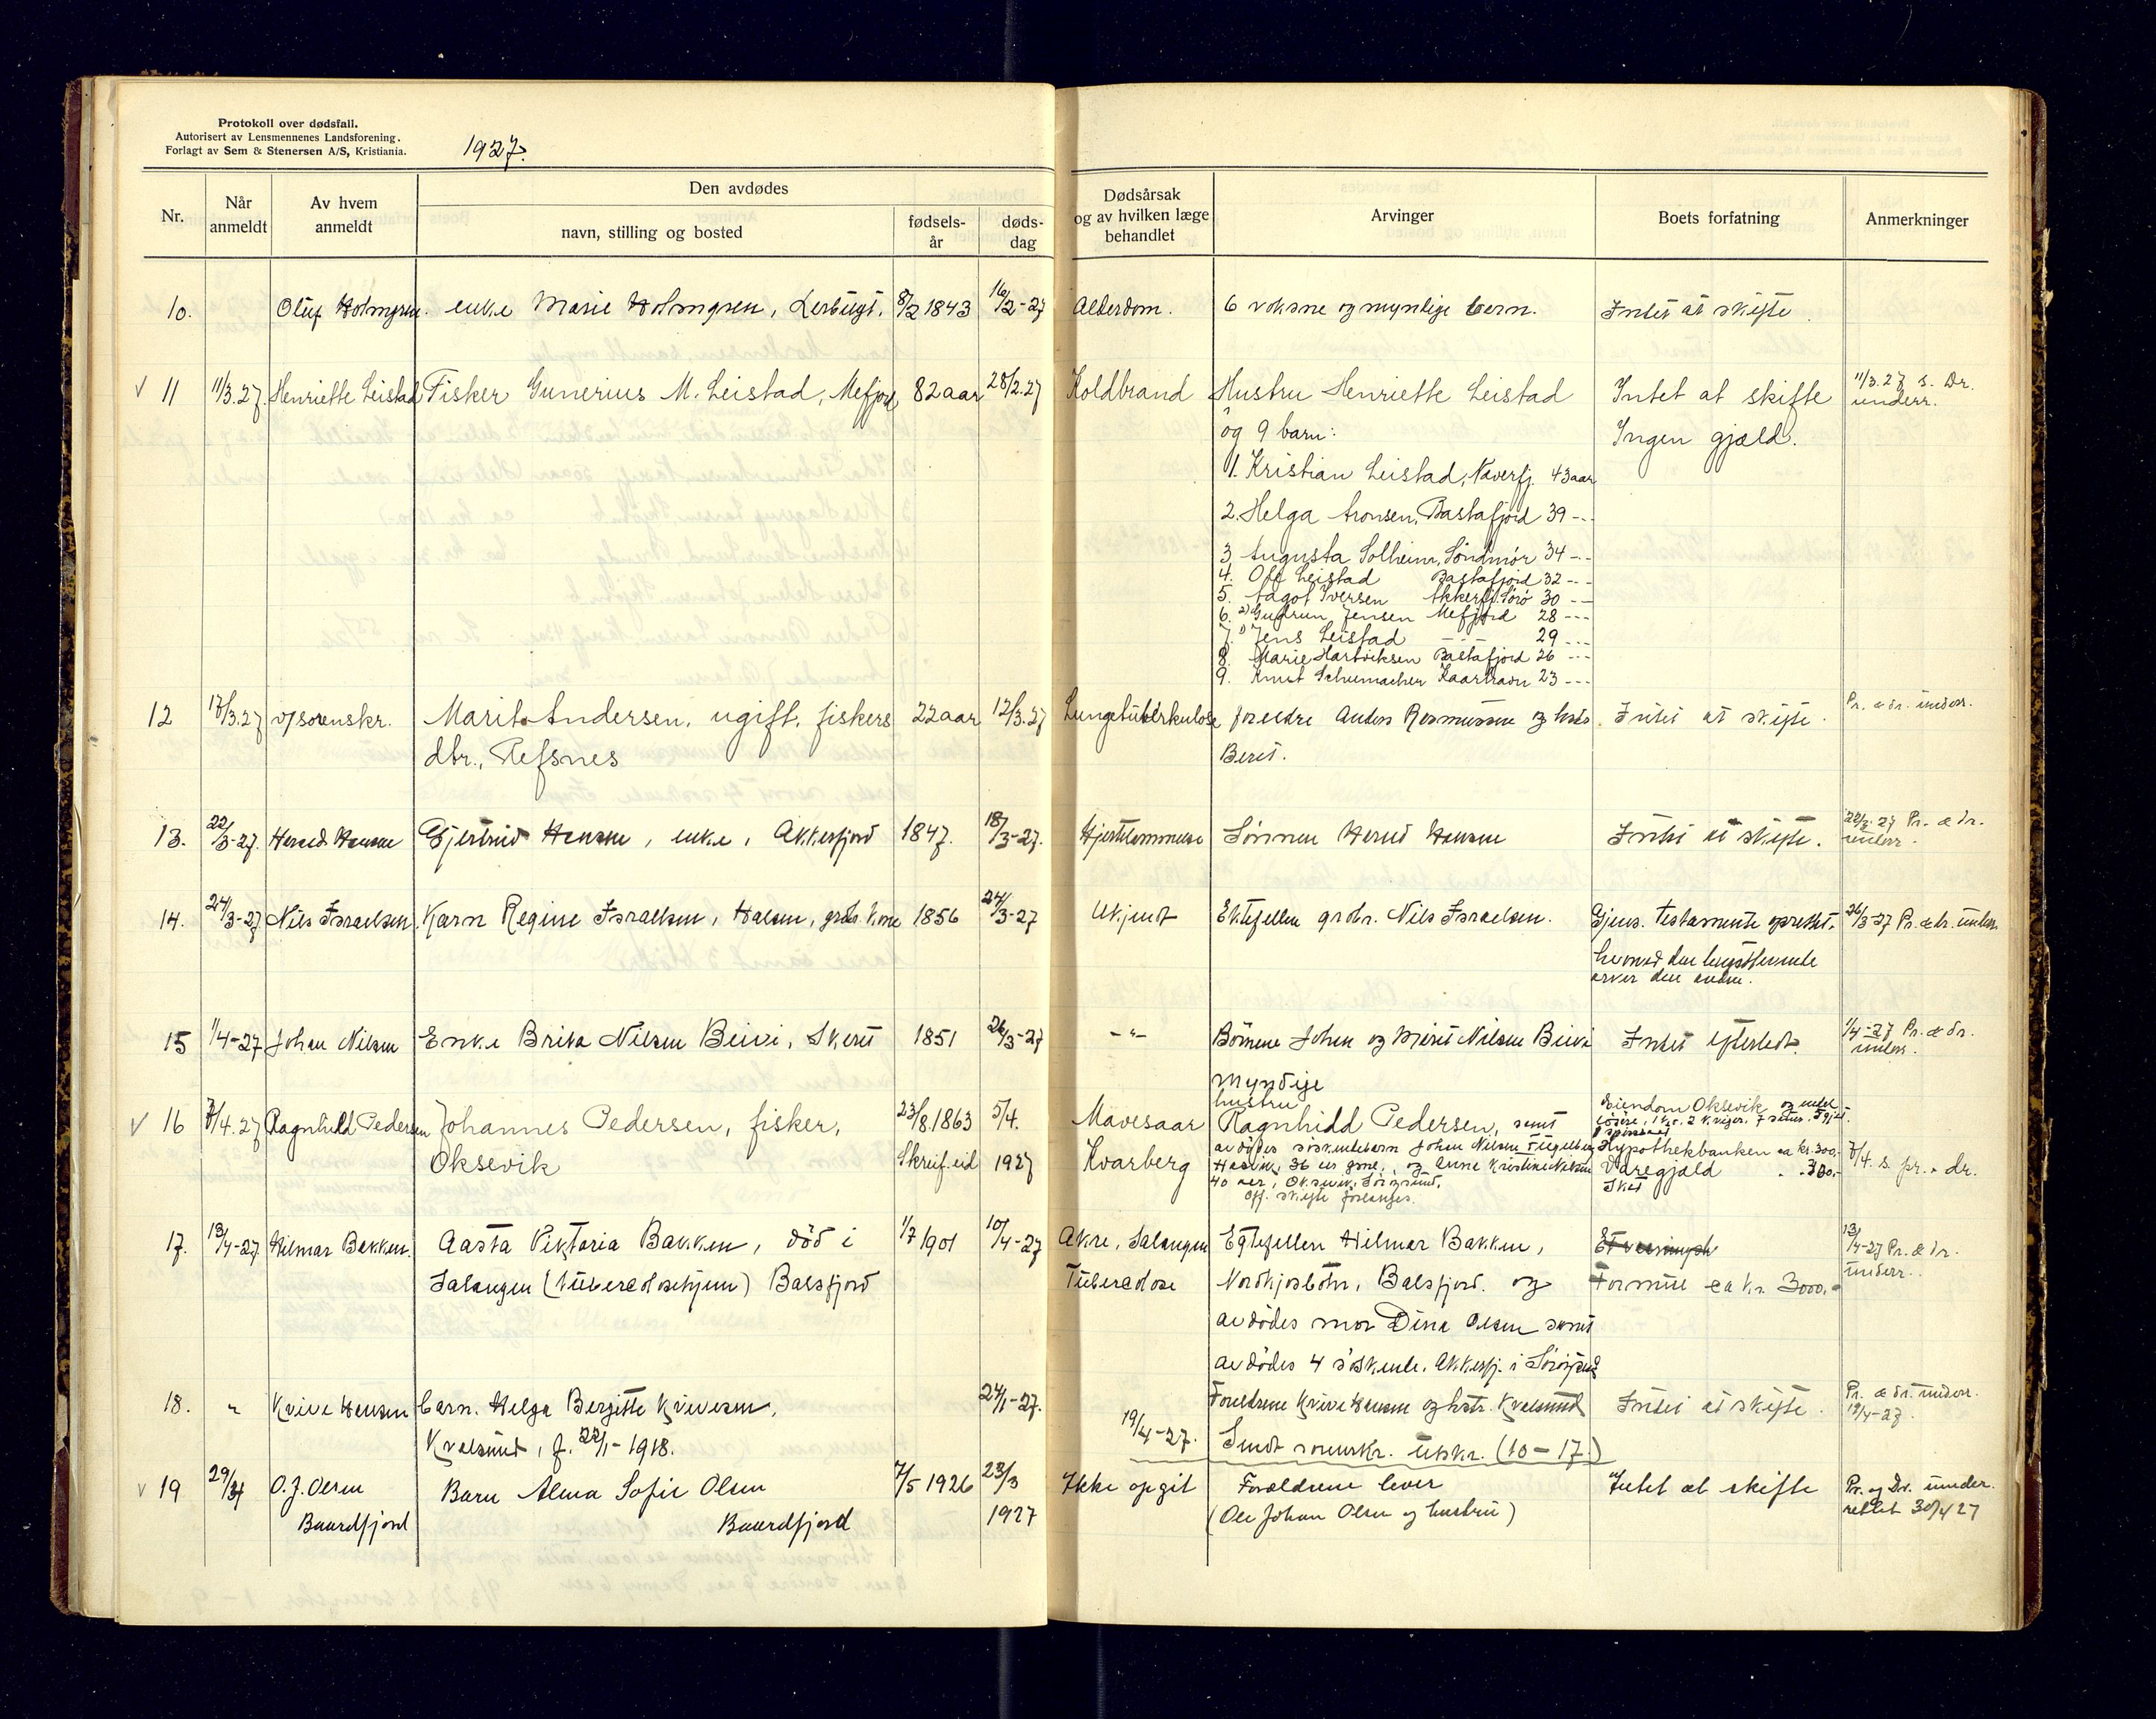 Protokoll over dødsfall.
Autorisert av Lensmennenes Landsforening.
Forlagt av Sem & Stenersen A/S, Kristiania.
1927.
Nr.
Når anmeldt
Av hvem anmeldt
Den avdødes
navn, stilling og bosted
fødsels-år
døds-dag
Dødsårsak og av hvilken læge behandlet
Arvinger
Boets forfatning
Anmerkninger
10. Oluf Holmgren. enke Marie Holmgren, Lerbugt. 8/2 1843 16/2-27 Alderdom. 6 voksne og myndige barn. Intet at skifte.
√ 11 11/3.27. Henriette Leistad Fisker Gunerius M. Leistad, Mefjord 82 aar 28/2.27 Koldbrand Hustru Henriette Leistad Intet at skifte 11/3.27 s. Dr.
og 9 barn: Ingen gjæld. underr.
1. Kristian Leistad, Naverfj. 43 aar
2. Helga Aronsen, Bastafjord 39 -"-
3 Augusta Solheim, Søndmør 34 -"-
4. Ole Leistad Bastafjord 32 -"-
5. Aagot Iversen Akkerfj. Sørø 30 -"-
6. 2) Gudrun Jensen Mefjord 28 -"-
7. 1) Jens Leistad -"- 29 -"-
8. Marie Hartviksen Bastafjord 26 -"-
9. Knut Schumacher Kaarhavn 23 -"-
12 17/3.27 v/sorenskr. Marit Andersen, ugift, fiskers 22 aar 12/3.27 Lungetuberkulose foreldre Anders Rasmussen og hstr. Intet at skifte. Pr. & dr. underr.
dtr., Refsnes Beret.
13. 22/3-27. Hansen Gjertrud Hansen, enke, Akkerfjord 1847. 18/3-27. Hjertelammelse Sønnen Hansen Intet at skifte. 22/3.27 Pr. & dr.
underr.
14. 24/3-27 Nils Israelsen. Karn Regine Israelsen, Halsen, grdbr. kone 1856 24/3-27 Ukjendt Ektefellen grdbr. Nils Israelsen. Gjens. testamente oprettet, 26/3-27 Pr. & dr. underr.
hvorved den lengstlevende
arver den anden.
15 1/4-27 Johan Nilsen Enke Brita Nilsen Beivi, 1851 26/3-27 -"- Børnene Johan og Merit Nilsen Beivi Intet efterladt. 1/4-27 Pr. & dr.
myndige underr.
√ 16 7/4.27 Ragnhild Pedersen Johannes Pedersen, fisker, 23/8.1863 5/4. Mavesaar hustru Ragnhild Pedersen, samt Eiendom Oksevik og endel
Oksevik Skreif.eid 1927 Kvarberg avdødes søskendebarn Johan Nilsen Hypothekbanken ca kr. 300.- 7/4. s. pr. & dr.
36 aar gml., og Anne Kristine Nilsen Varegjæld " " 300.-
40 aar, Oksevik, Sørøysund. Skat
Off. skifte forlanges.
17. 13/4-27 Hilmar Bakken. Aasta Viktoria Bakken, död i 1/7 1901 10/4-27 Akre, Salangen Egtefellen Hilmar Bakken, 13/4-27 Pr. & dr.
Salangen (tuberculosehjem) Balsfjord Tuberculose Nordkjosbotn, Balsfjord. og Formue ca kr. 3000.- underr.
avdødes mor Dina Olsen samt
avdødes 4 söskende. Akkerfj. i Sörøysund
18. " Krive Hansen barn. Helga Bergitte Krivesen, 24/1-27. Foreldrene Krive Hansen og hstr. Kvalsund Intet at skifte. Pr. & dr. underr.
Kvalsund, f. 22/1-1918. 19/4-27.
19/4-27. Sendt sorenskr. utskr. (10-17.)
√ 19 29/4 O. J. Olsen Barn Alma Sofie Olsen 7/5 1926 23/3 Ikke opgit Forældrene lever Intet at skifte Pr. og Dr. under-
Baardfjord Baardfjord 1927 (Ole Johan Olsen og hustru) rettet 30/4 27